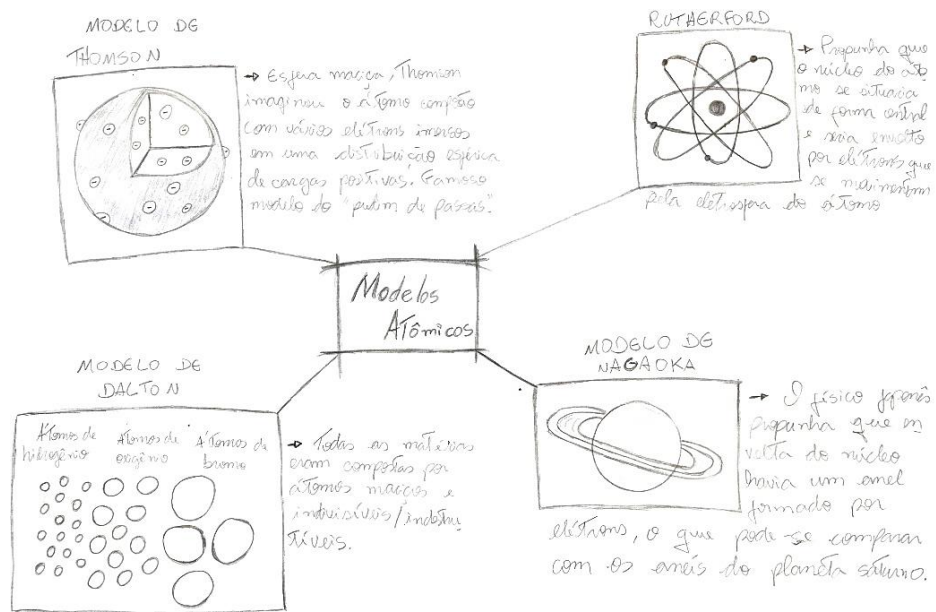 MODELO DE
THOMSON
→ Esfera maciça, Thomson
imaginou o átomo
com vários elétrons imersos
em uma distribuição esférica
de cargas positivas. Famoso
modelo do "pudim de passas".
RUTHERFORD
→ Propunha que
o núcleo do áto
mo se situaria
de forma central
e seria envolto
por elétrons que
se movimentam
pela eletrosfera do átomo
Modelos
Atômicos
MODELO DE
DALTON
Átomos de
hidrogênio
Átomos de
oxigênio
Átomos de
bromo
→ Todas as matérias
eram compostas por
átomos maciços e
indivisíveis/indestru
tíveis.
MODELO DE
NAGAOKA
→ O físico japonês
propunha que em
volta do núcleo
havia um anel
formado por
elétrons, o que pode-se comparar
com os anéis do planeta saturno.